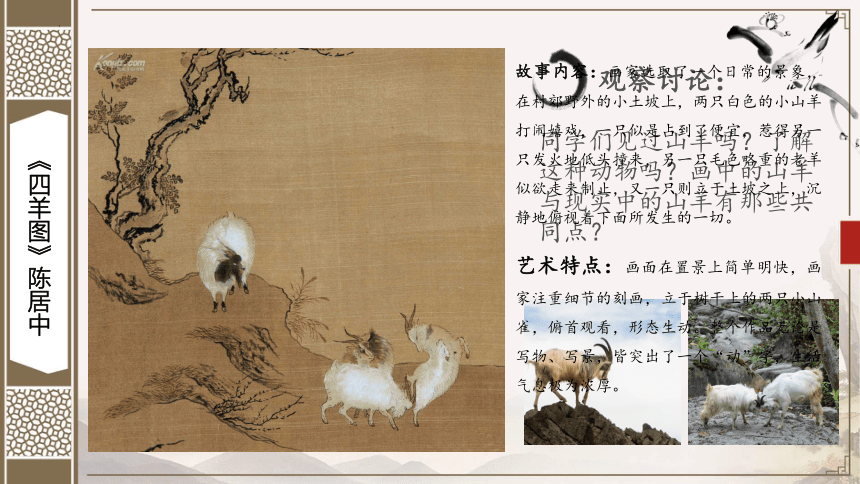 《四羊图》陈居中
故事内容：画家选取了一个日常的景象，
在村郊野外的小土坡上，两只白色的小山羊
打闹嬉戏，一只似是占到了便宜，惹得另一
只发火地低头撞来，另一只毛色略重的老羊
似欲走来制止，又一只则立于土坡之上，沉
静地俯视着下面所发生的一切。
艺术特点：画面在置景上简单明快，画
家注重细节的刻画，立于树干上的两只小山
雀，俯首观看，形态生动。整个作品无论是
写物、写景，皆突出了一个“动”字，生活
气息极为浓厚。
观察讨论：
同学们见过山羊吗？了解
这种动物吗？画中的山羊
与现实中的山羊有那些共
同点？